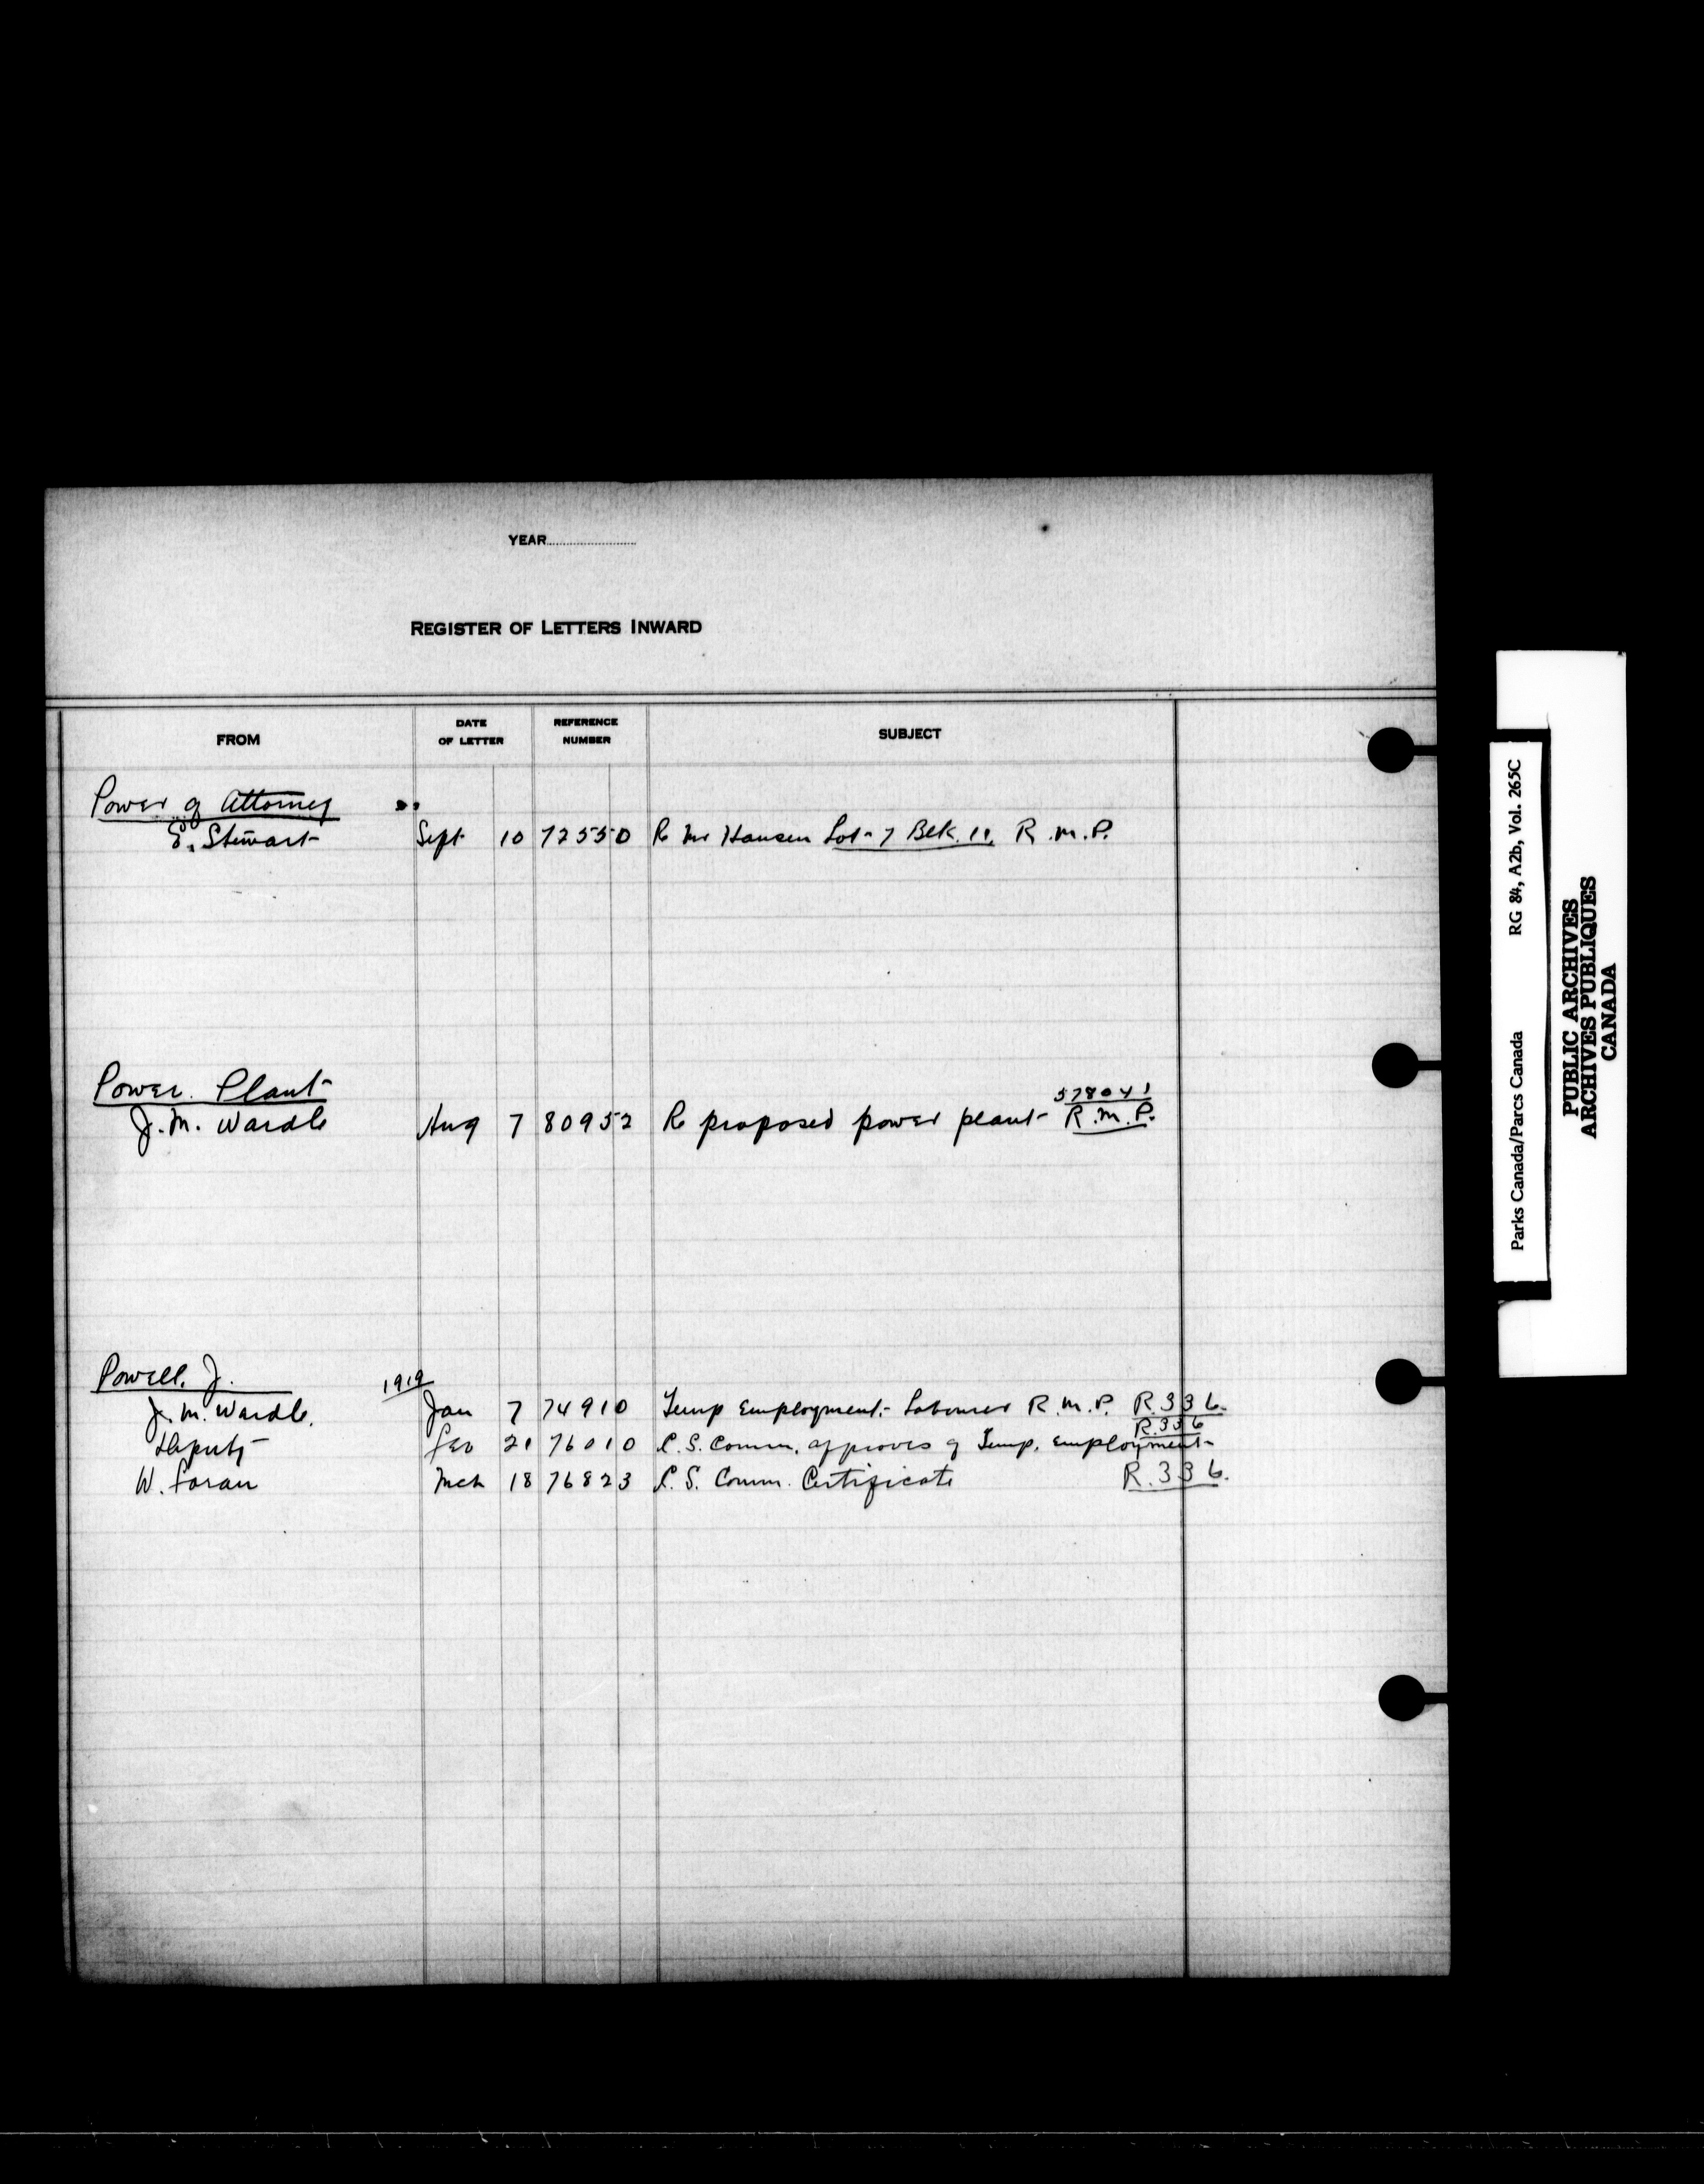 YEAR
REGISTER OF LETTERS INWARD
FROM DATE OF LETTER REFERENCE NUMBER SUBJECT
Power of Attorney
E. Stewart Sept 10 72550 Re Mr Hansen Lot 7 Blk. 11. R.M.P.
Power Plant 578041
J. M. Wardle Aug 7 80952 Re proposed power plant R.M.P.
Powell. J. 1919
J. M. Wardle. Jan 7 74910 Temp Employment. Labourer R.M.P. R.336.
R.336
Deputy Feb 21 76010 C.S. Comm. approves of Temp. Employment
W. Foran Mch 18 76823 C.S. Comm. Certificate R.336.
Parks Canada/Parcs Canada RG 84, A2b, Vol. 265C
PUBLIC ARCHIVES
ARCHIVES PUBLIQUES
CANADA